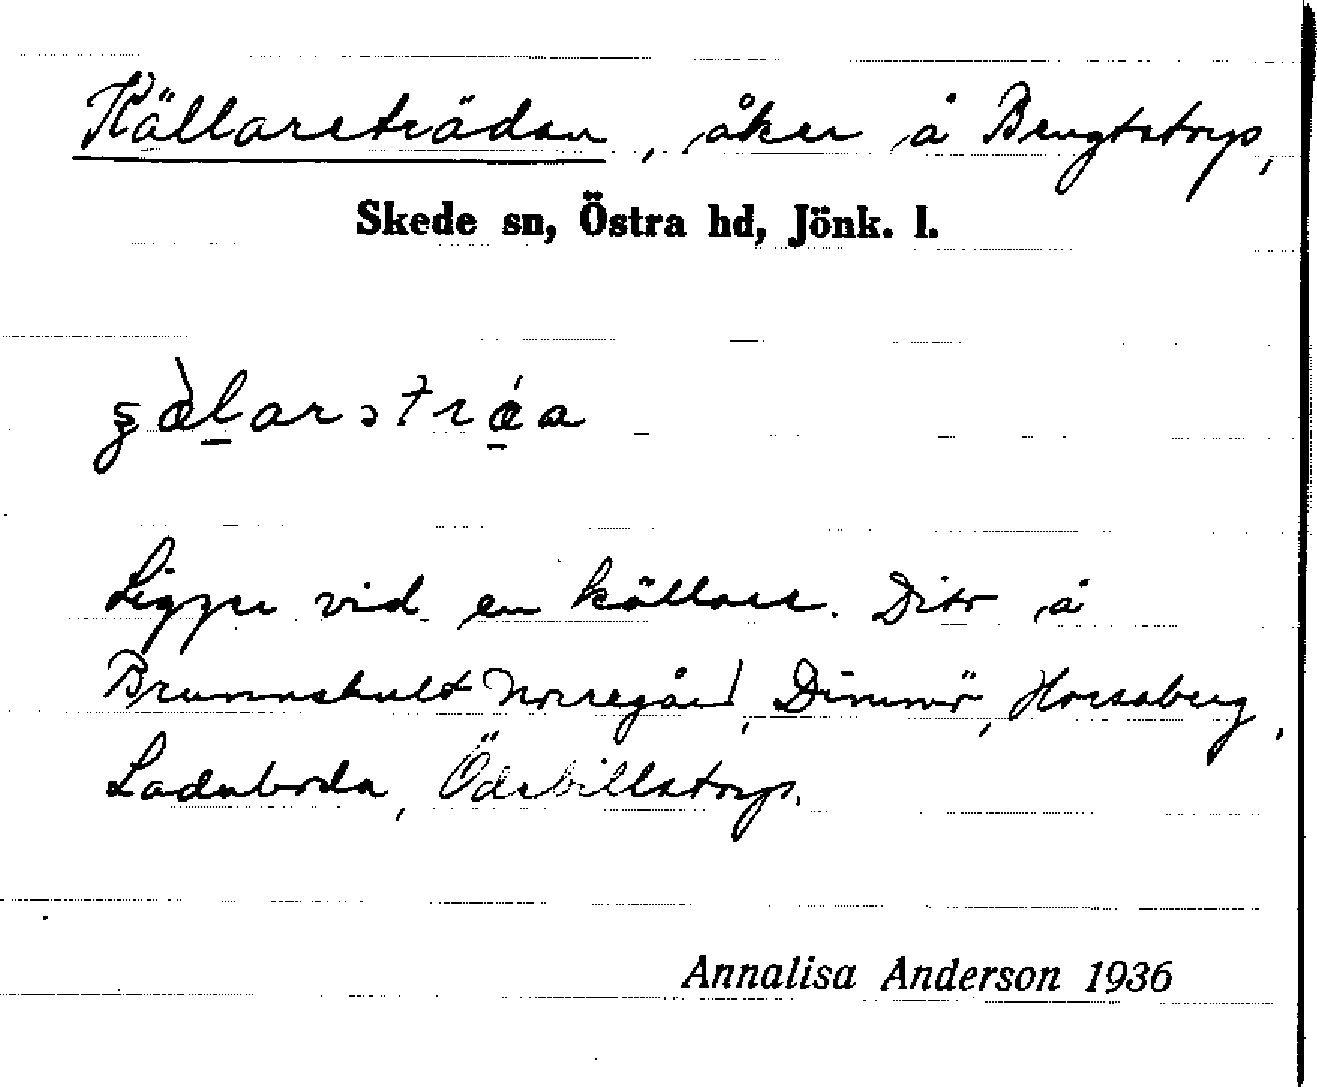 Källareträdan, åker å Bengtstorp,
Skede sn, Östra hd, Jönk. l.
Ligger vid en källare. Dito å
Brunnshult Norregård, Dimmö, Horsaberg,
Ladaboda, Ödebillstorp.
Annalisa Anderson 1936